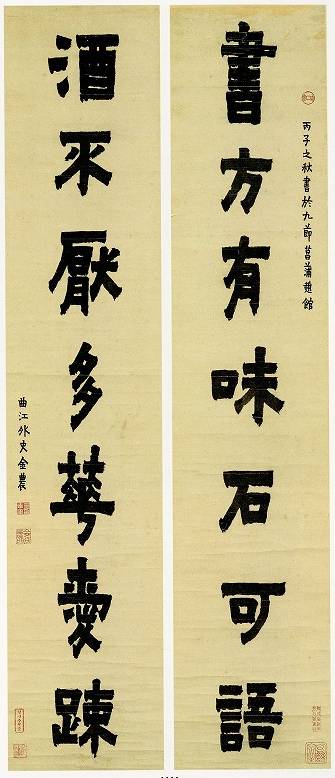 丙子之秋書於九節菖蒲憩館
書方有味石可語
酒不厭多華愛踈
曲江外史金農